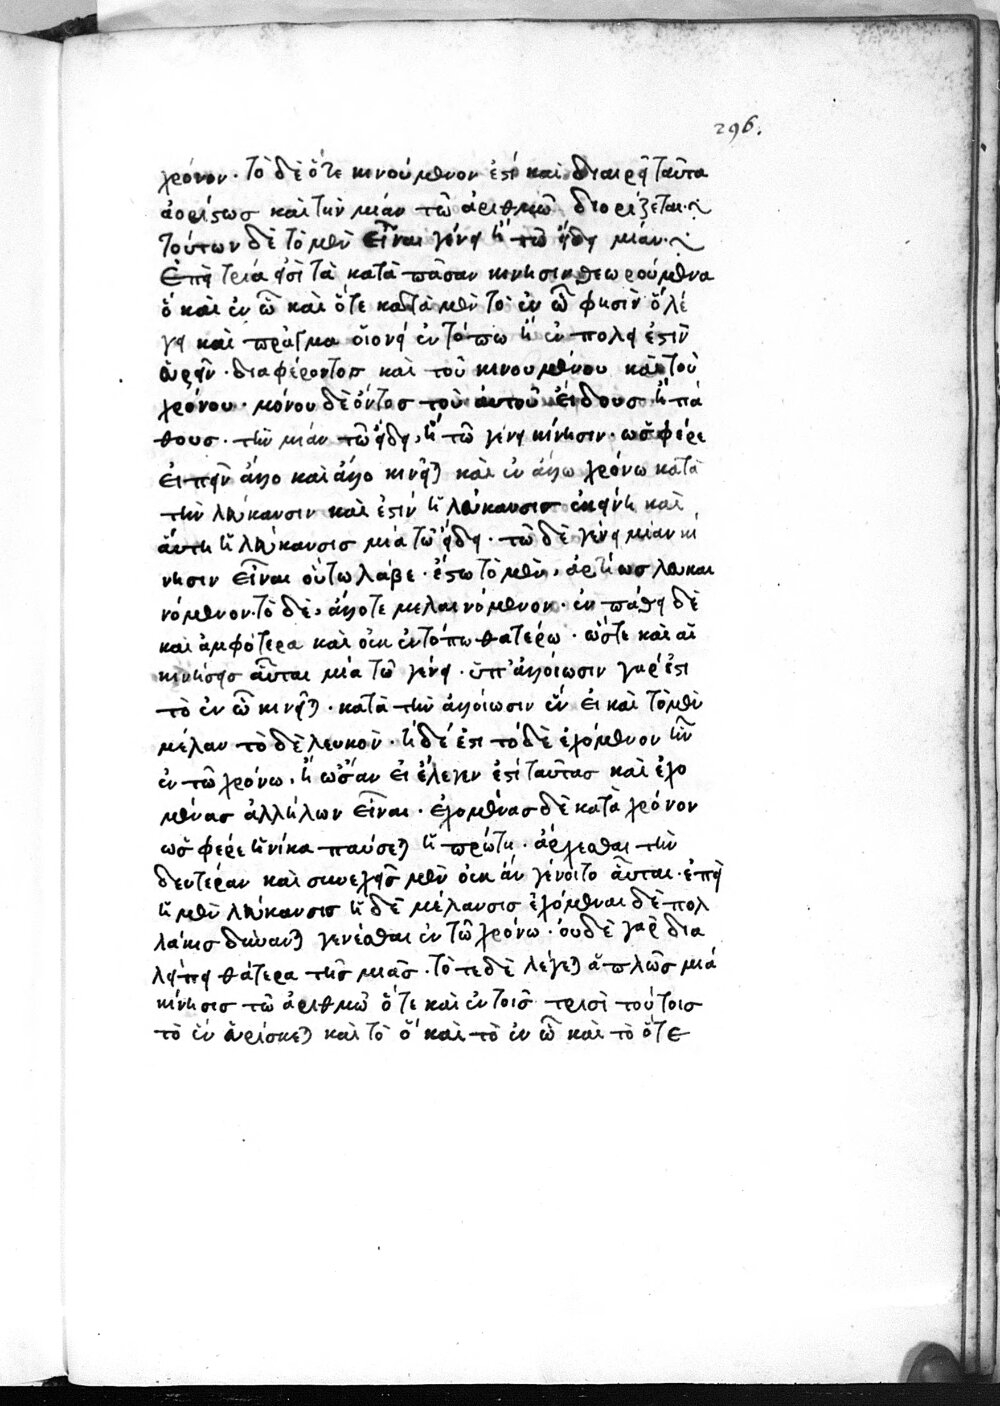 296.
χρόνον· τὸ δὲ ὅτε κινούμενον ἐστί καὶ διαιρεῖ ταῦτα
ἀορίστως καὶ τὴν μίαν τῶ ἀριθμῶ διορίζεται·
τούτων δὲ τὸ μὲν εἶναι γένει ἢ τῶ εἴδει μίαν·
ἐπεὶ τρία εἰσὶ τὰ κατὰ πᾶσαν κίνησιν θεωρούμενα
ὅ καὶ ἐν ὧ καὶ ὅτε κατὰ μὲν τὸ ἐν ὧ φησὶν ὃ λέ
γει καὶ πρᾶγμα οἱονεὶ ἐν τόπω ἢ ἐν πάθει ἐστὶν
εὑρεῖν· διαφέροντος καὶ τοῦ κινουμένου καὶ τοῦ
χρόνου· μόνου δὲ ὄντος τοῦ αὐτοῦ εἴδους ἢ πά
θους· τὴν μίαν τῶ εἴδει, ἢ τῶ γένει κίνησιν· ὡς φέρε
εἰπεῖν ἄλλο καὶ ἄλλο κινεῖται καὶ ἐν ἄλλω χρόνω κατὰ
τὴν λεύκανσιν καὶ ἐστίν ἡ λεύκανσις ἐκείνη καὶ
αὕτη ἡ λεύκανσις μία τῶ εἴδει· τῶ δὲ γένει μίαν κί
νησιν εἶναι οὕτω λάβε· ἔστω τὸ μὲν, ἀρτίως λευκαι
νόμενον· τὸ δὲ, ἄλλοτε μελαινόμενον· ἐν πάθει δὲ
καὶ ἀμφότερα καὶ οὐκ ἐν τόπω θατέρω· ὥστε καὶ αἱ
κινήσεις αὗται μία τῶ γένει· ὑπ' ἀλλοίωσιν γάρ ἐστι
τὸ ἐν ὧ κινεῖται· κατὰ τὴν ἀλλοίωσιν ἓν εἰ καὶ τὸ μὲν
μέλαν τὸ δὲ λευκόν· ἡ δέ ἐστι τόδὲ ἐχόμενον ἦν
ἐν τῶ χρόνω· ἢ ὡσὰν εἰ ἔλεγεν ἐστί ταύτας καὶ ἐχο
μένας ἀλλήλων εἶναι· ἐχομένας δὲ κατὰ χρόνον
ὡς φέρε ἡνίκα παύσεται ἡ πρώτη· ἄρχεσθαι τὴν
δευτέραν καὶ συνεχεῖς μὲν οὐκ ἂν γένοιτο αὗται· ἐπεὶ
ἡ μὲν λεύκανσις ἡ δὲ μέλανσις ἐχόμεναι δὲ πολ
λάκις δύνανται γενέσθαι ἐν τῶ χρόνω· οὐδὲ γὰρ δια
λείπει θάτερα τῆς μιᾶς· τότε δὲ λέγεται ἁπλῶς μιά
κίνησις τῶ ἀριθμῶ ὅτε καὶ ἐν τοῖς τρισὶ τούτοις
τὸ ἓν εὑρίσκεται καὶ τὸ ὅ καὶ τὸ ἐν ὧ καὶ τὸ ὅτε